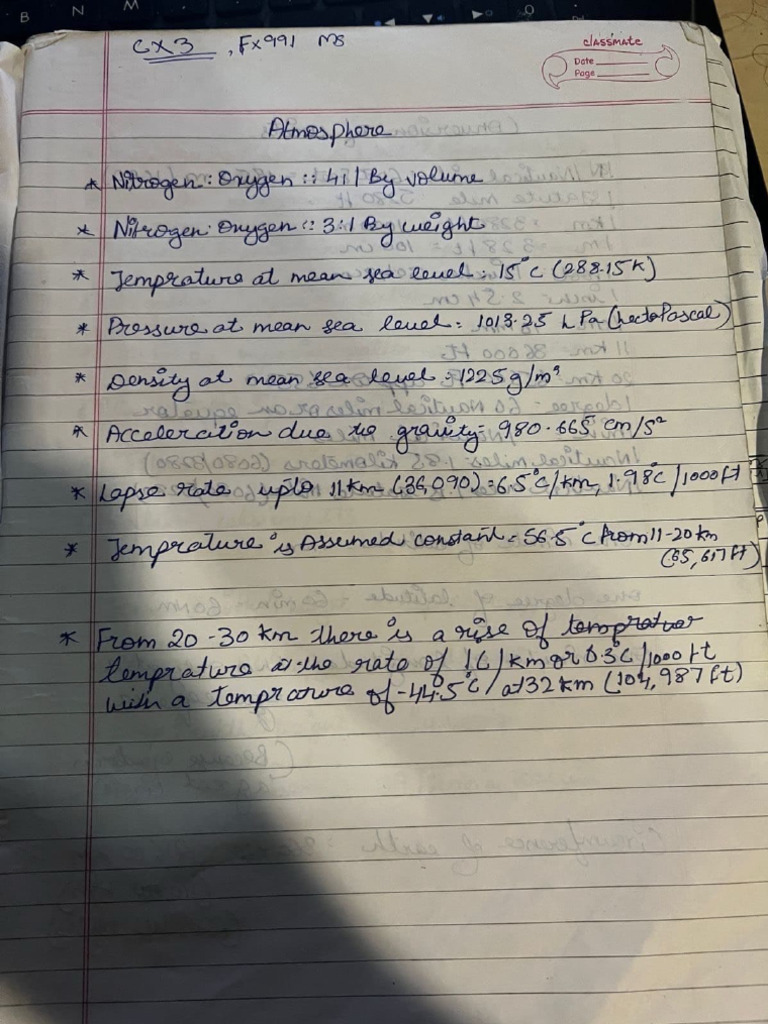 B N M
CX3, FX991 MS
classmate
Date
Page
Atmosphere
* Nitrogen : Oxygen :: 4:1 By volume
* Nitrogen : Oxygen :: 3:1 By weight
* Temprature at mean sea level : 15°C (288.15K)
* Pressure at mean sea level = 1013.25 h Pa (hectoPascal)
* Density at mean sea level : 1225 g/m³
* Acceleration due to gravity = 980.665 cm/s²
* Lapse rate upto 11 km (36,090) = 6.5°C/km, 1.98°C/1000ft
* Temprature is Assumed constant = 56.5°C from 11-20 km
(65,617 ft)
* From 20-30 km there is a rise of
temprature at the rate of 1C/km or 0.3C/1000 ft
with a temprature of -44.5°C/at 32 km (104,987 ft)